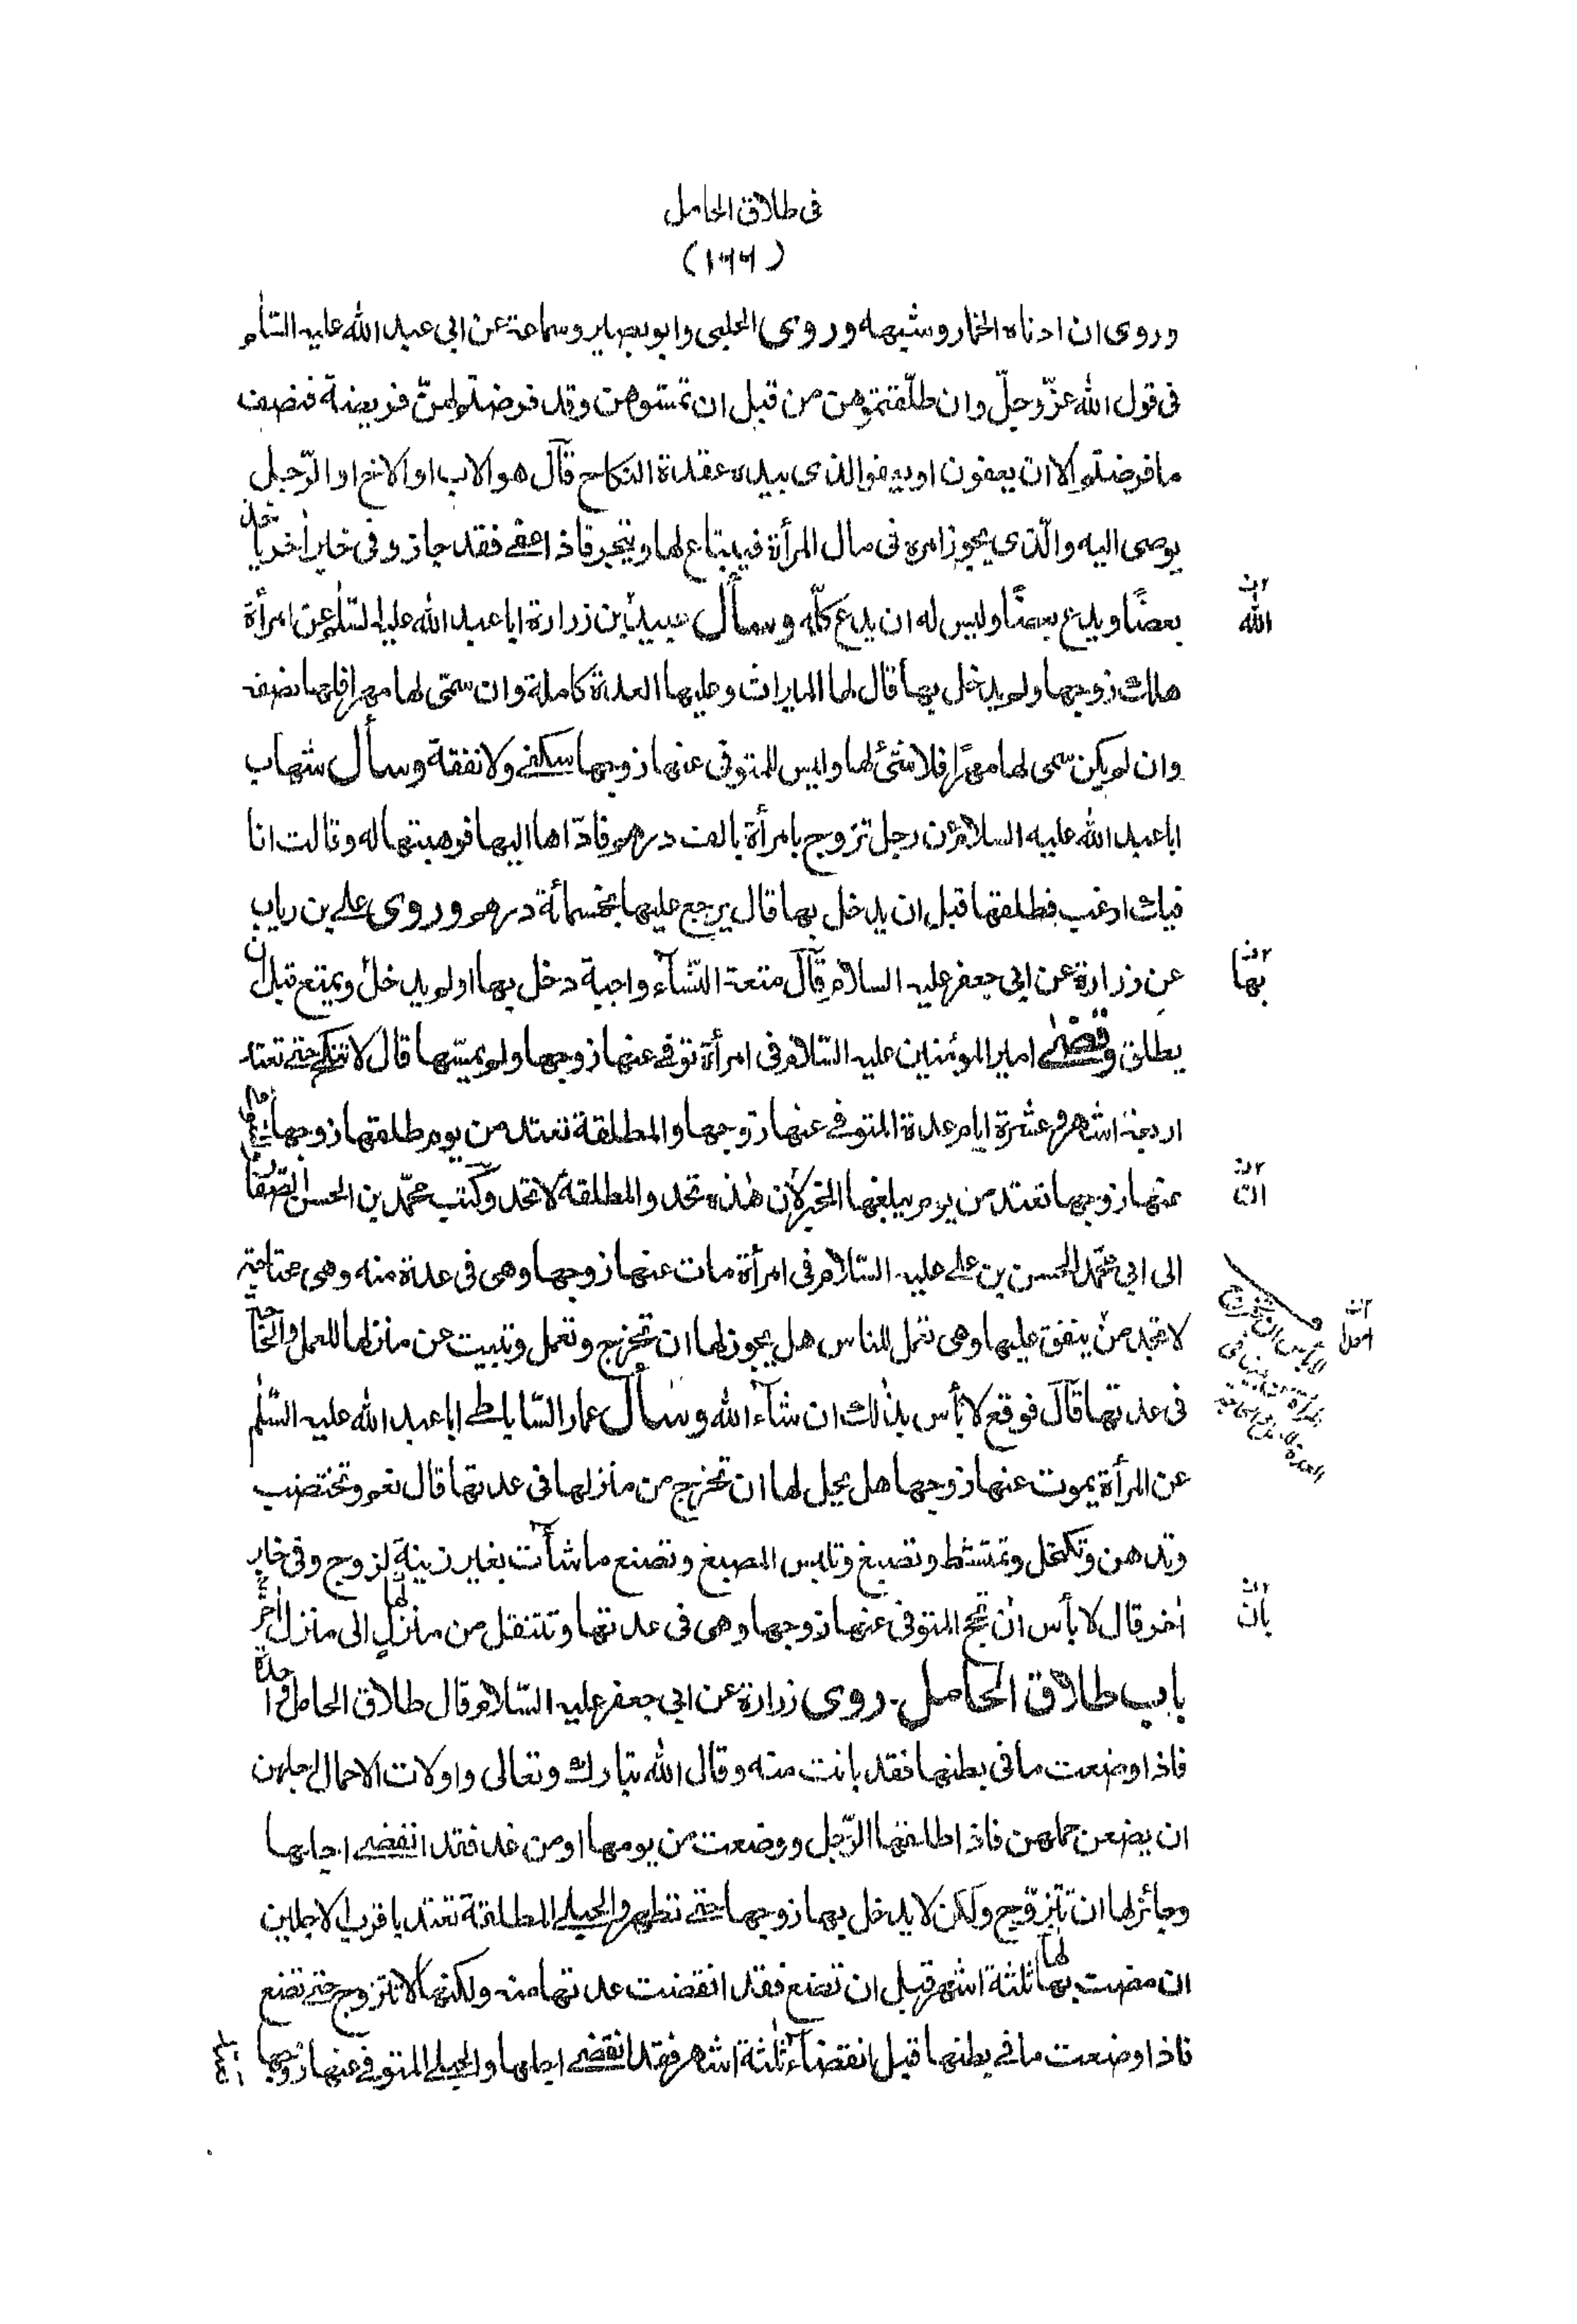 فى طلاق الحامل
(۱۶۶)
وروى ان ادناه الخمار وشبهه وروى الحلبى وابو بصير وسماعة عن ابى عبد الله عليه السّلم
فى قول الله عزّ وجلّ وان طلّقتموهن من قبل ان تمسّوهن وقد فرضتم لهنّ فريضة فنصف
ما فرضتم إلا ان يعفون او يعفو الذى بيده عقدة النكاح قال هو الاب او الاخ او الرّجل
يوصى اليه والّذى يجوز امره فى مال المرأة فيبتاع لها ويتجر فاذا عفى فقد جاز وفى خبر اٰخر ياخذ
بعضًا ويدع بعضًا وليس له ان يدع كلّه وسأل عبيد بن زرارة ابا عبد الله عليه السّلم عن امرأة
هلك زوجها ولم يدخل بها قال لها الميراث وعليها العدة كاملة وان سمّى لها مهرا فلها نصفه
وان لم يكن سمى لها مهرًا فلا شئ لها وليس للمتوفى عنها زوجها سكنى ولا نفقة وسأل شهاب
ابا عبد الله عليه السلام عن رجل تزوج بامرأة بالف درهم فادّاها اليها فوهبتها له وقالت انا
فيك ارغب فطلقها قبل ان يدخل بها قال يرجع عليها بخمسمائة درهم وروى على بن رياب
عن زرارة عن ابى جعفر عليه السلام قال متعة النّسآء واجبة دخل بها او لم يدخل ويمتع قبل ان
يطلق وقضى امير المؤمنين عليه السّلام فى امرأة توفى عنها زوجها ولم يمسّها قال لا تنكح حتى تعتد
اربعة اشهر وعشرة ايام عدة المتوفى عنها زوجها والمطلقة تعتد من يوم طلقها زوجها والمتوفى
عنها زوجها تعتد من يوم يبلغها الخبر لأن هٰذه تحد والمطلقة لا تحد وكتب محمّد بن الحسن الصّفّار
الى ابى محمّد الحسن بن على عليه السّلام فى امرأة مات عنها زوجها وهى فى عدة منه وهى محتاجة
لا تجد من ينفق عليها وهى تعمل للناس هل يجوز لها ان تخرج وتعمل وتبيت عن منزلها للعمل والحاجة
فى عدتها قال فوقع لا بأس بذٰلك ان شآء الله وسأل عمار السّاباطى ابا عبد الله عليه السّلم
عن المرأة يموت عنها زوجها هل يحل لها ان تخرج من منزلها فى عدتها قال نعم وتختضب
وتدهن وتكتحل وتمتشط وتصبغ وتلبس المصبغ وتصنع ما شآءت بغير زينة لزوج وفى خبر
اٰخر قال لا بأس ان تحج المتوفى عنها زوجها وهى فى عدتها وتنتقل من منزل الى منزل اٰخر
باب طلاق الحامل. روى زرارة عن ابى جعفر عليه السّلام قال طلاق الحامل واحدة
فاذا وضعت ما فى بطنها فقد بانت منه وقال الله تبارك وتعالى واولات الاحمال اجلهن
ان يضعن حملهن فاذا طلقها الرّجل ووضعت من يومها او من غد فقد انقضى اجلها
وجائز لها ان تتزوّج ولكن لا يدخل بها زوجها حتى تطهر والحبلى المطلقة تعتد باقرب الاجلين
ان مضت بها ثلثة اشهر قبل ان تضع فقد انقضت عدتها منه ولكنها لا تتزوج حتى تضع
فاذا وضعت ما فى بطنها قبل انقضآء ثلثة اشهر فقد انقضى اجلها والحبلى المتوفى عنها زوجها
الله
بها
بان